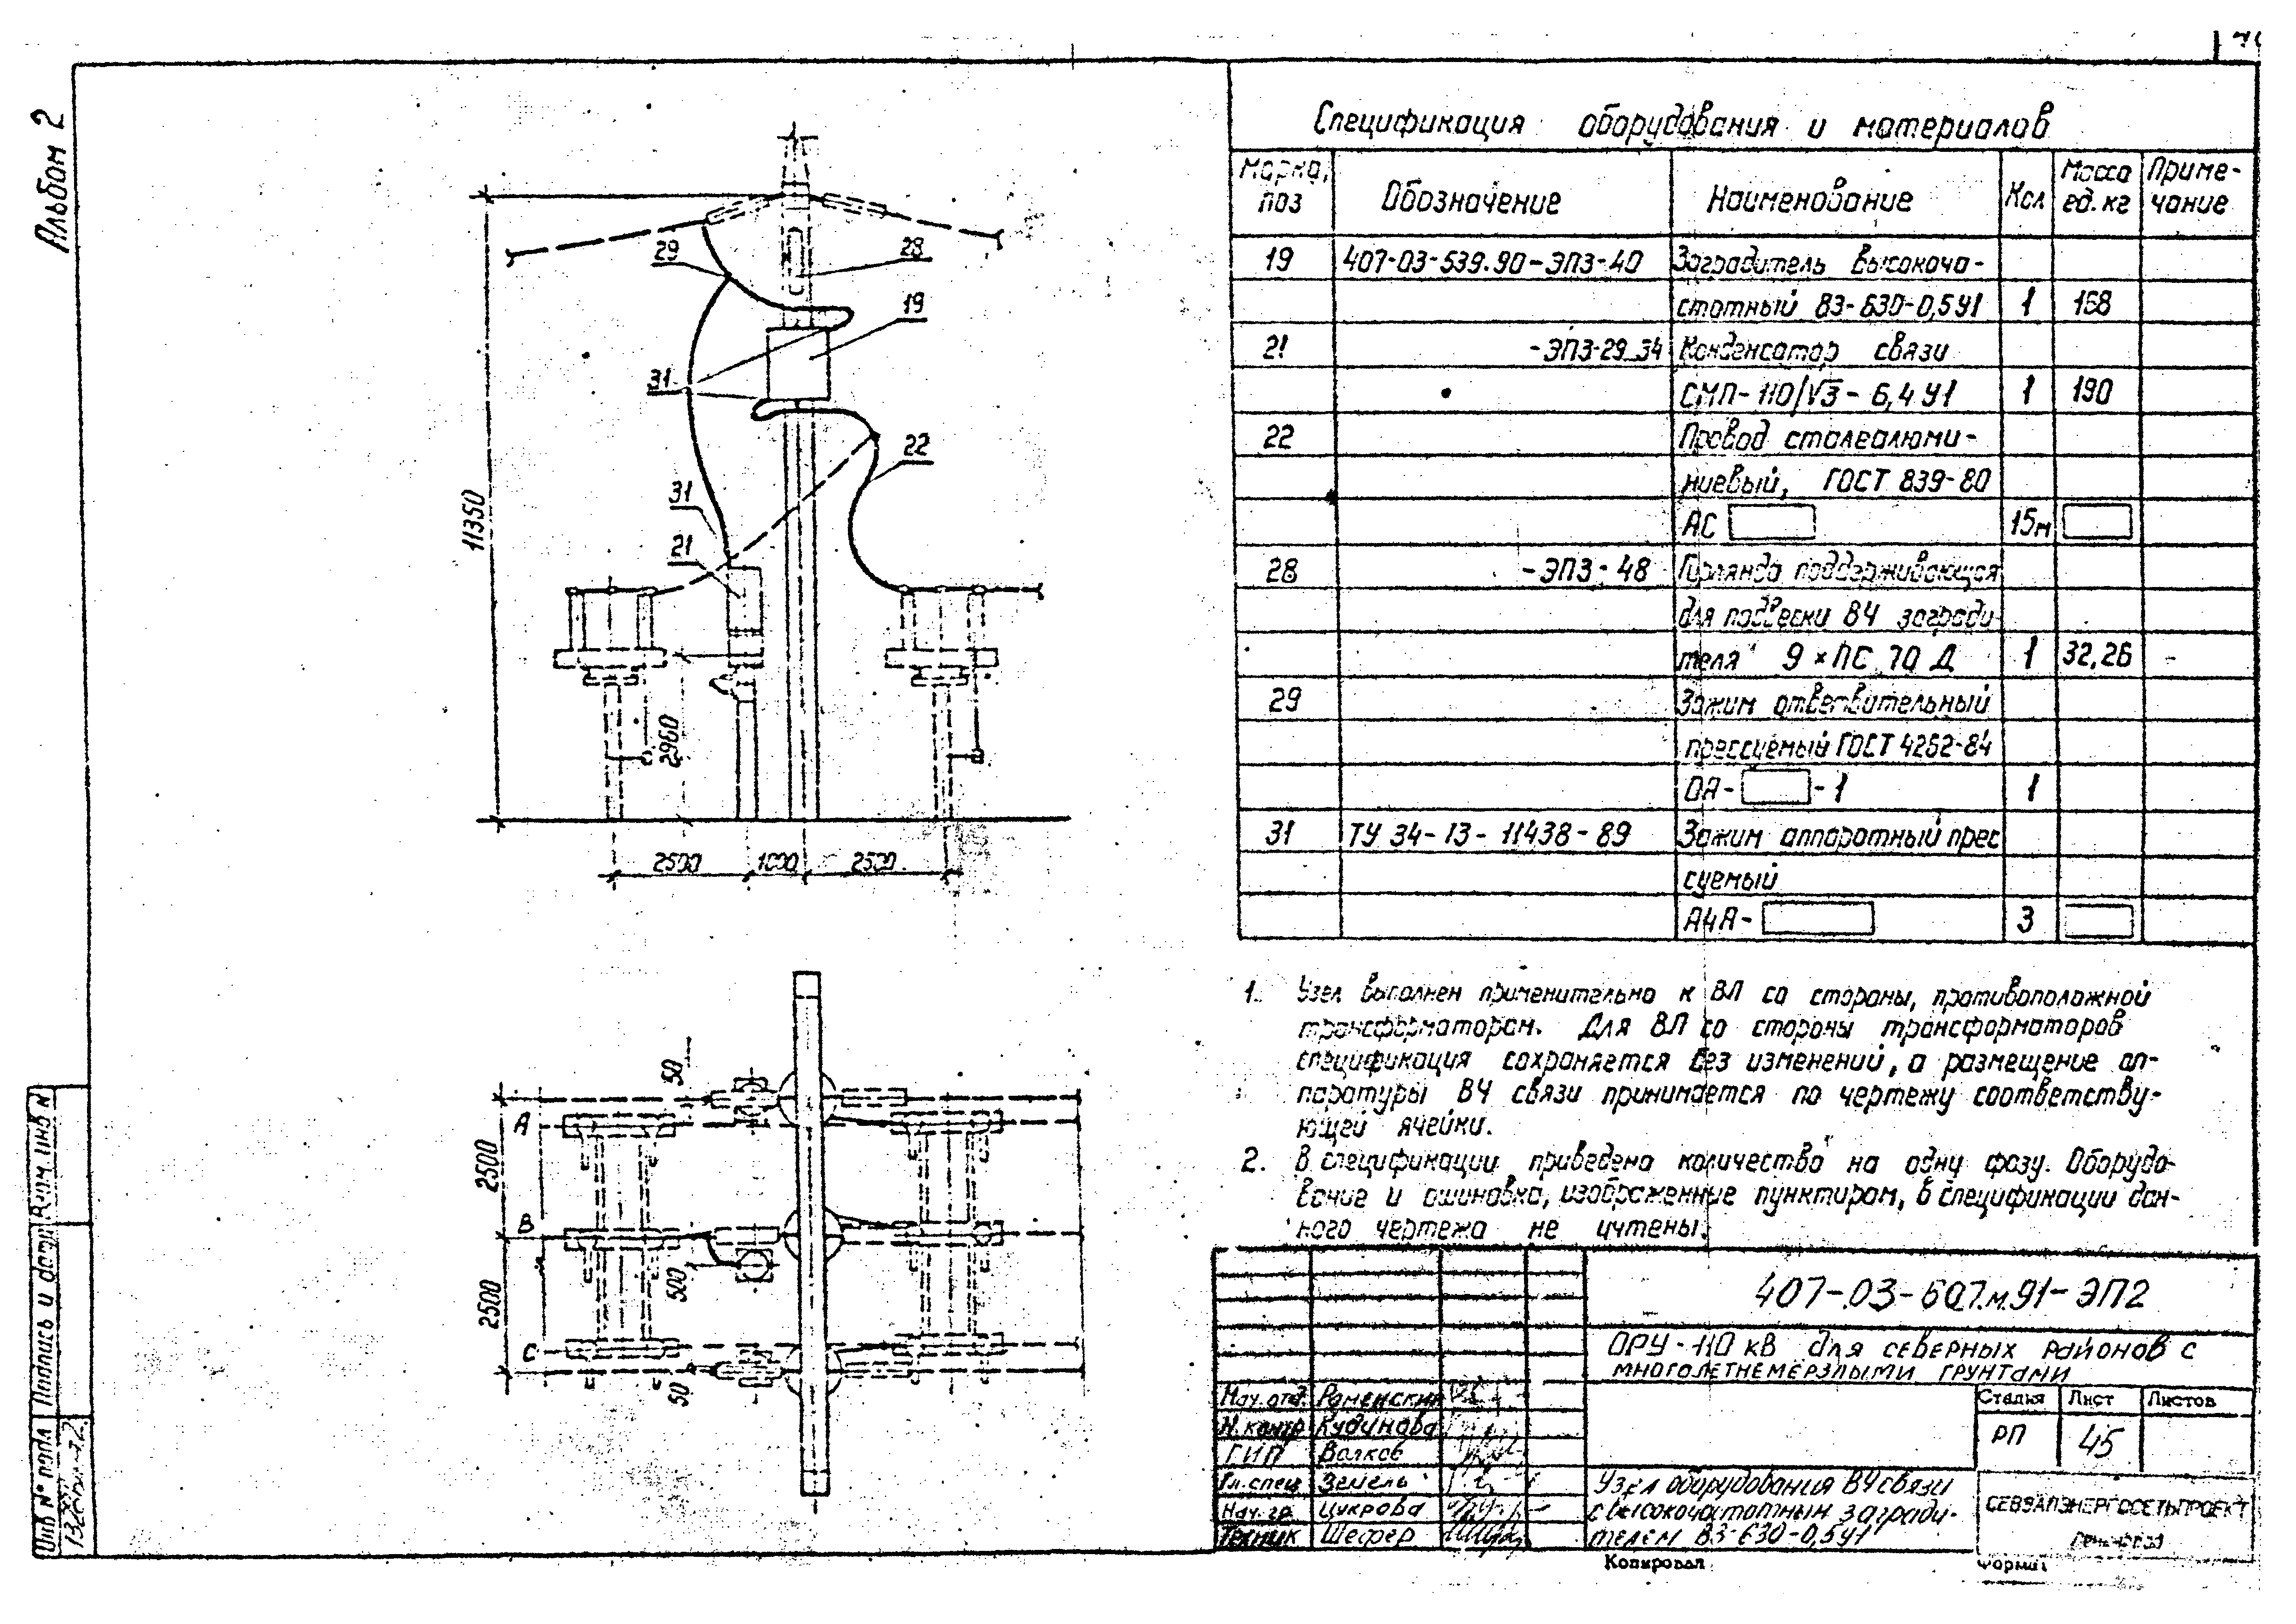 Альбом 2
29
28
19
31
22
31
21
11350
2960
2500 1000 2500
50
А
2500
В
500
2500
С
50
Спецификация оборудования и материалов
Марка, поз
Обозначение
Наименование
Кол
Масса ед. кг
Приме-
чание
19 407-03-539.90-ЭП3-40 Заградитель высокоча-
стотный ВЗ-630-0,5У1 1 168
21 -ЭП3-29..34 Конденсатор связи
СМП-110/√3-6,4 У1 1 190
22 Провод сталеалюми-
ниевый, ГОСТ 839-80
АС 15м
28 -ЭП3-48 Гирлянда поддерживающая
для подвески ВЧ загради
теля 9×ПС 70 Д 1 32,26 -
29 Зажим ответвительный
прессуемый ГОСТ 4262-84
ОА- -1 1
31 ТУ 34-13-11438-89 Зажим аппаратный прес
суемый
А4А- 3
1. Узел выполнен применительно к ВЛ со стороны, противоположной
трансформаторам. Для ВЛ со стороны трансформаторов
спецификация сохраняется без изменений, а размещение ап-
паратуры ВЧ связи принимается по чертежу соответству-
ющей ячейки.
2. В спецификации приведено количество на одну фазу. Оборудо-
вание и ошиновка, изображенные пунктиром, в спецификации дан-
ного чертежа не учтены.
407-03-607.м.91-ЭП2
ОРУ-110 кВ для северных районов с
многолетнемерзлыми грунтами
Нач. отд. Раменский
Н. контр Кудинова
ГИП Волков
Гл. спец Земель
Нач. гр. Цукрова
Техник Шефер
Стадия Лист Листов
РП 45
Узел оборудования ВЧ связи
с высокочастотным загради-
телем ВЗ-630-0,5У1
СЕВЗАПЭНЕРГОСЕТЬПРОЕКТ
Копировал
Формат
Взам. инв №
Подпись и дата
Инв № подл